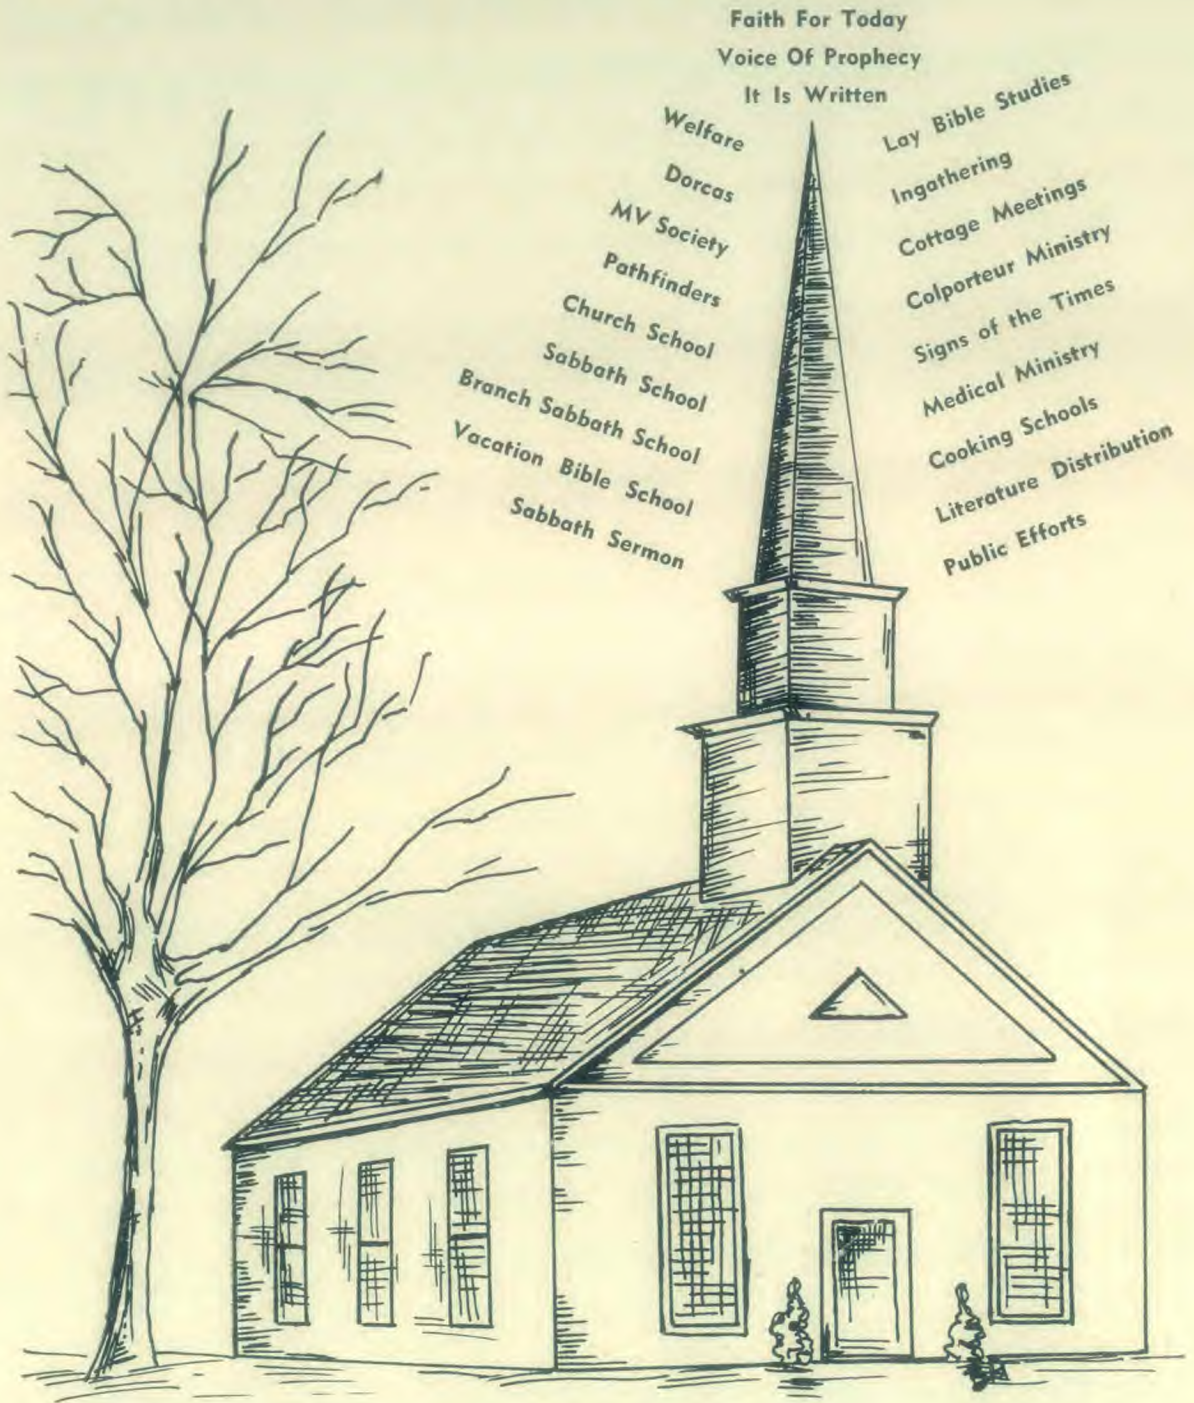 Faith For Today
Voice Of Prophecy
It Is Written
Welfare
Dorcas
MV Society
Pathfinders
Church School
Sabbath School
Branch Sabbath School
Vacation Bible School
Sabbath Sermon
Lay Bible Studies
Ingathering
Cottage Meetings
Colporteur Ministry
Signs of the Times
Medical Ministry
Cooking Schools
Literature Distribution
Public Efforts